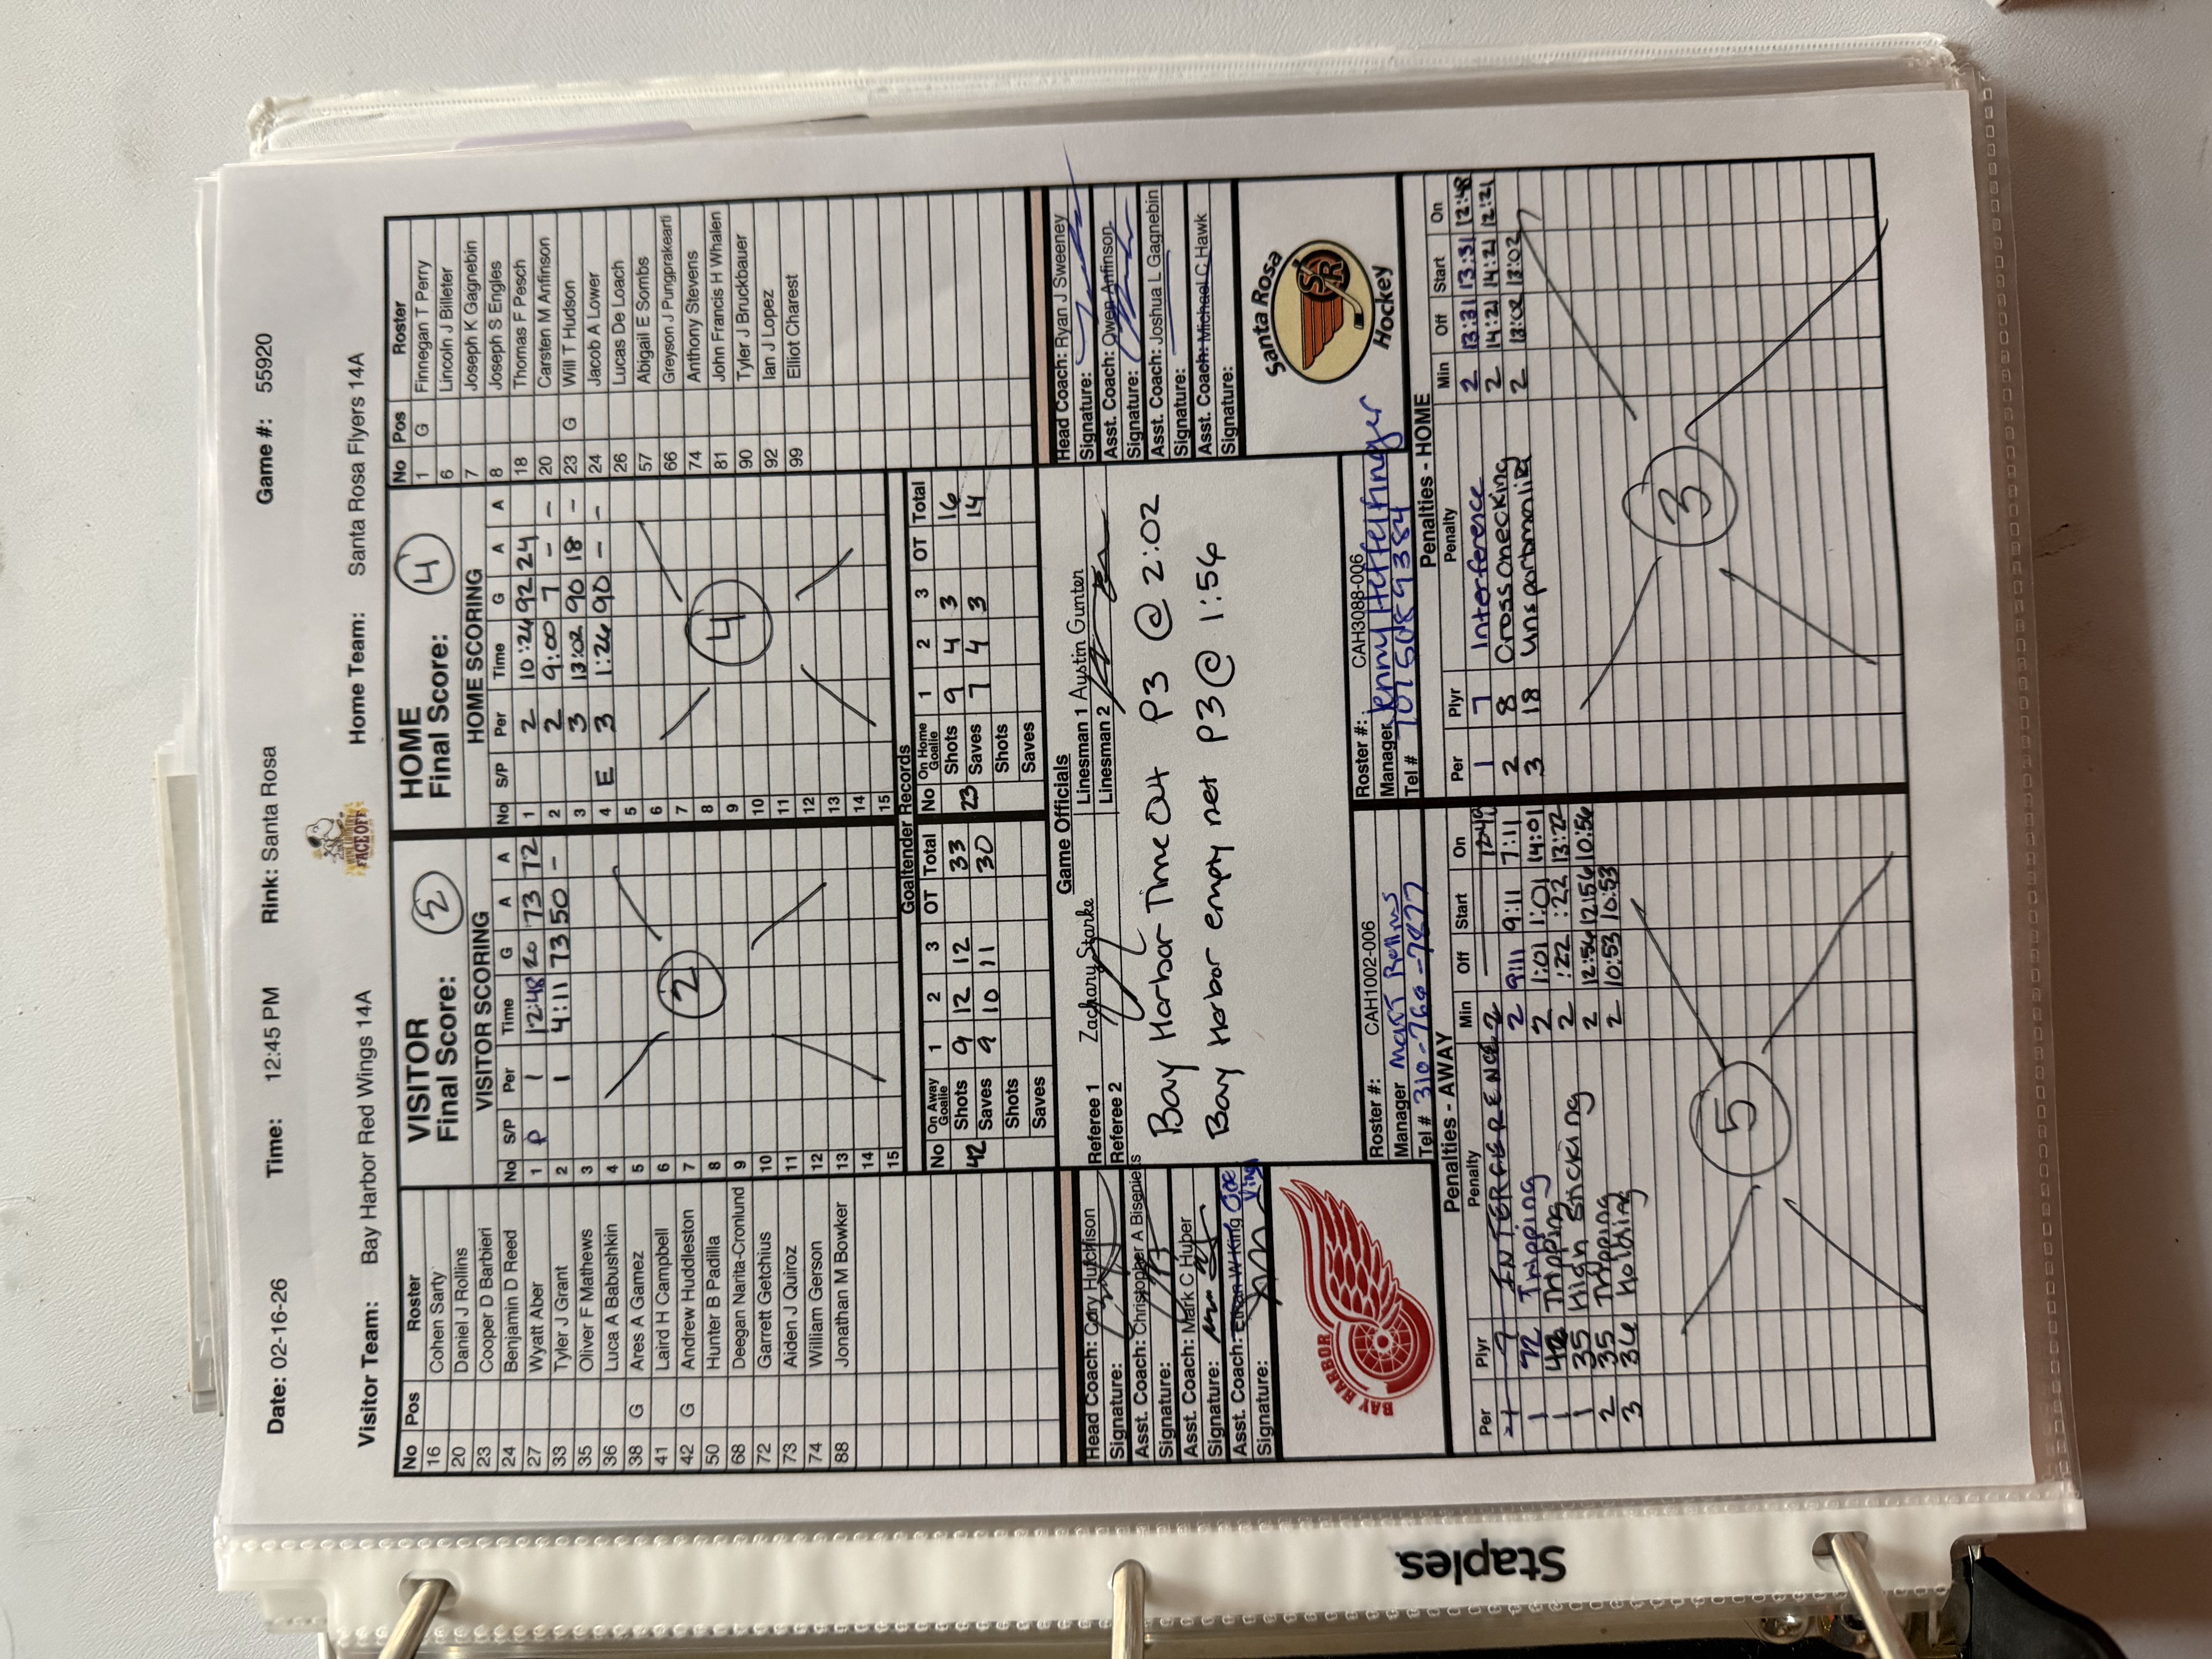 Date: 02-16-26 Time: 12:45 PM Rink: Santa Rosa Game #: 55920
WINE COUNTRY FACEOFF
Visitor Team: Bay Harbor Red Wings 14A Home Team: Santa Rosa Flyers 14A
VISITOR
Final Score: 2
HOME
Final Score: 4
No Pos Roster
16 Cohen Sarty
20 Daniel J Rollins
23 Cooper D Barbieri
24 Benjamin D Reed
27 Wyatt Aber
33 Tyler J Grant
35 Oliver F Mathews
36 Luca A Babushkin
38 G Ares A Gamez
41 Laird H Campbell
42 G Andrew Huddleston
50 Hunter B Padilla
68 Deegan Narita-Cronlund
72 Garrett Getchius
73 Aiden J Quiroz
74 William Gerson
88 Jonathan M Bowker
VISITOR SCORING
No S/P Per Time G A A
1 P 1 12:48 20 73 72
2 1 4:11 73 50 -
3
4
5
6
7
8
9
10
11
12
13
14
15
2
HOME SCORING
No S/P Per Time G A A
1 2 10:24 92 24
2 2 9:00 7 - -
3 3 13:02 90 18 -
4 E 3 1:26 90 - -
5
6
7
8
9
10
11
12
13
14
15
4
No Pos Roster
1 G Finnegan T Perry
6 Lincoln J Billeter
7 Joseph K Gagnebin
8 Joseph S Engles
18 Thomas F Pesch
20 Carsten M Anfinson
23 G Will T Hudson
24 Jacob A Lower
26 Lucas De Loach
57 Abigail E Sombs
66 Greyson J Pungprakearti
74 Anthony Stevens
81 John Francis H Whalen
90 Tyler J Bruckbauer
92 Ian J Lopez
99 Elliot Charest
Goaltender Records
No On Away Goalie 1 2 3 OT Total
42 Shots 9 12 12 33
Saves 9 10 11 30
Shots
Saves
No On Home Goalie 1 2 3 OT Total
23 Shots 9 4 3 16
Saves 7 4 3 14
Shots
Saves
Head Coach: Cory Hutchison
Signature:
Asst. Coach: Christopher A Biseniers
Signature:
Asst. Coach: Mark C Huber
Signature:
Asst. Coach: Ethan W King Joe
Signature:
Game Officials
Referee 1 Zachary Starke
Referee 2
Linesman 1 Austin Gunter
Linesman 2
Bay Harbor Time Out P3 @ 2:02
Bay Harbor empty net P3 @ 1:54
Head Coach: Ryan J Sweeney
Signature:
Asst. Coach: Owen Anfinson
Signature:
Asst. Coach: Joshua L Gagnebin
Signature:
Asst. Coach: Michael C Hawk
Signature:
BAY HARBOR
Santa Rosa
SR
Hockey
Roster #: CAH1002-006
Manager Matt Rollins
Tel # 310-766-7877
Roster #: CAH3088-006
Manager Jenny Heffelfinger
Tel # 7075089384
Penalties - AWAY
Per Plyr Penalty Min Off Start On
7 INTERFERENCE 2 12:49
1 72 Tripping 2 9:11 9:11 7:11
1 Tripping 2 1:01 1:01 14:01
1 35 High Sticking 2 :22 :22 13:22
2 35 Tripping 2 12:56 12:56 10:56
3 36 Holding 2 10:53 10:53
5
Penalties - HOME
Per Plyr Penalty Min Off Start On
1 7 Interference 2 13:31 13:31 12:48
2 8 Crosschecking 2 14:21 14:21 12:21
3 18 Unsportsmanlike 2 13:02 13:02
3
Staples